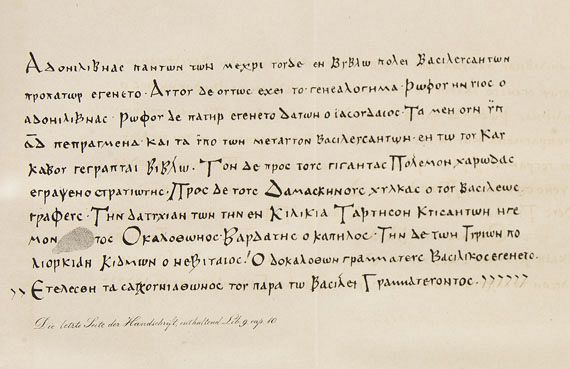 Αδονιλιβνας παντων των μεχρι τουδε εν Βυβλω πολει Βασιλευσαντων
προπατωρ εγενετο · Αυτου δε ουτως εχει το γενεαλογημα · Ρωφου ην υιος ο
αδονιλιβνας · Ρωφου δε πατηρ εγενετο Δατων ο ιασορδαιος · Τα μεν ουν ϋπ
πεπραγμενα · και τα ϋπο των μετ αυτον Βασιλευσαντων · εν τω του Καυ
καβου γεγραπται Βιβλω · Τον δε προς τους γιγαντας Πολεμον χαρωδας
εγραψενο στρατιωτης · Προς δε τους Δαμασκηνους χυλκας ο του βασιλεως
γραφευς · Την δ αυ των την εν Κιλικια Ταρτησον Κτισαντων ηγε
μον τος Οκαλοθωνος · Βαρδατης ο καπηλος · Την δε των Τυριων πο
λιορκιαν Κιδμων ο νεβιταιος · Ο δοκαλοθων γραμματευς Βασιλικος εγενετο ·
〉〉 Ετελεσθη τα σαχογνιαθωνος του παρα τω Βασιλει Γραμματευοντος · 〉〉〉〉〉〉
Die letzte Seite der Handschrift, enthaltend Lib. 9 cap. 10